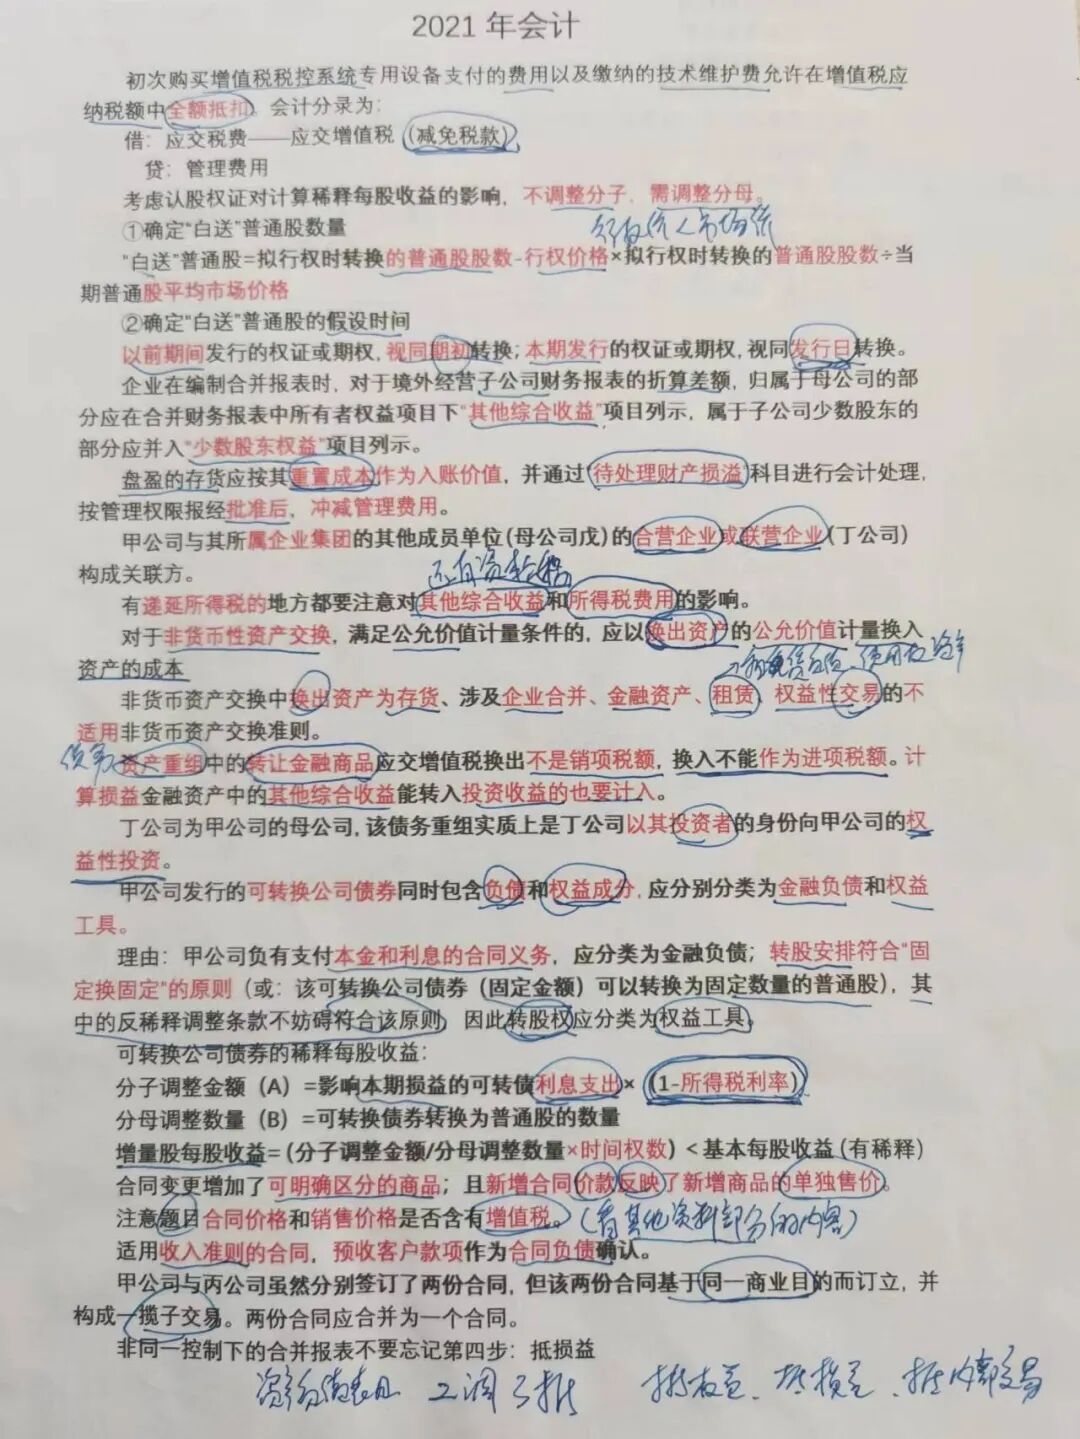 2021 年会计
初次购买增值税税控系统专用设备支付的费用以及缴纳的技术维护费允许在增值税应
纳税额中全额抵扣。会计分录为：
借：应交税费——应交增值税（减免税款）
贷：管理费用
考虑认股权证对计算稀释每股收益的影响，不调整分子，需调整分母。
①确定“白送”普通股数量
行权价<市场价
“白送”普通股=拟行权时转换的普通股股数-行权价格×拟行权时转换的普通股股数÷当
期普通股平均市场价格
②确定“白送”普通股的假设时间
以前期间发行的权证或期权，视同期初转换；本期发行的权证或期权，视同发行日转换。
企业在编制合并报表时，对于境外经营子公司财务报表的折算差额，归属于母公司的部
分应在合并财务报表中所有者权益项目下“其他综合收益”项目列示，属于子公司少数股东的
部分应并入“少数股东权益”项目列示。
盘盈的存货应按其重置成本作为入账价值，并通过“待处理财产损溢”科目进行会计处理，
按管理权限报经批准后，冲减管理费用。
甲公司与其所属企业集团的其他成员单位(母公司戊)的合营企业或联营企业(丁公司)
构成关联方。
还有资
有递延所得税的地方都要注意对其他综合收益和所得税费用的影响。
对于非货币性资产交换，满足公允价值计量条件的，应以换出资产的公允价值计量换入
资产的成本
使用权资产
非货币资产交换中换出资产为存货、涉及企业合并、金融资产、租赁、权益性交易的不
适用非货币资产交换准则。
债务
资产重组中的转让金融商品应交增值税换出不是销项税额，换入不能作为进项税额。计
算损益金融资产中的其他综合收益能转入投资收益的也要计入。
丁公司为甲公司的母公司，该债务重组实质上是丁公司以其投资者的身份向甲公司的权
益性投资。
甲公司发行的可转换公司债券同时包含负债和权益成分，应分别分类为金融负债和权益
工具。
理由：甲公司负有支付本金和利息的合同义务，应分类为金融负债；转股安排符合“固
定换固定”的原则（或：该可转换公司债券（固定金额）可以转换为固定数量的普通股），其
中的反稀释调整条款不妨碍符合该原则，因此转股权应分类为权益工具。
可转换公司债券的稀释每股收益：
分子调整金额（A）=影响本期损益的可转债利息支出×（1-所得税利率）
分母调整数量（B）=可转换债券转换为普通股的数量
增量股每股收益=（分子调整金额/分母调整数量×时间权数）<基本每股收益(有稀释)
合同变更增加了可明确区分的商品；且新增合同价款反映了新增商品的单独售价。
注意题目合同价格和销售价格是否含有增值税。（看其他资料部分的内容）
适用收入准则的合同，预收客户款项作为合同负债确认。
甲公司与丙公司虽然分别签订了两份合同，但该两份合同基于同一商业目的而订立，并
构成一揽子交易。两份合同应合并为一个合同。
非同一控制下的合并报表不要忘记第四步：抵损益
资产负债表日 二调三抵 抵权益、抵损益、抵内部交易